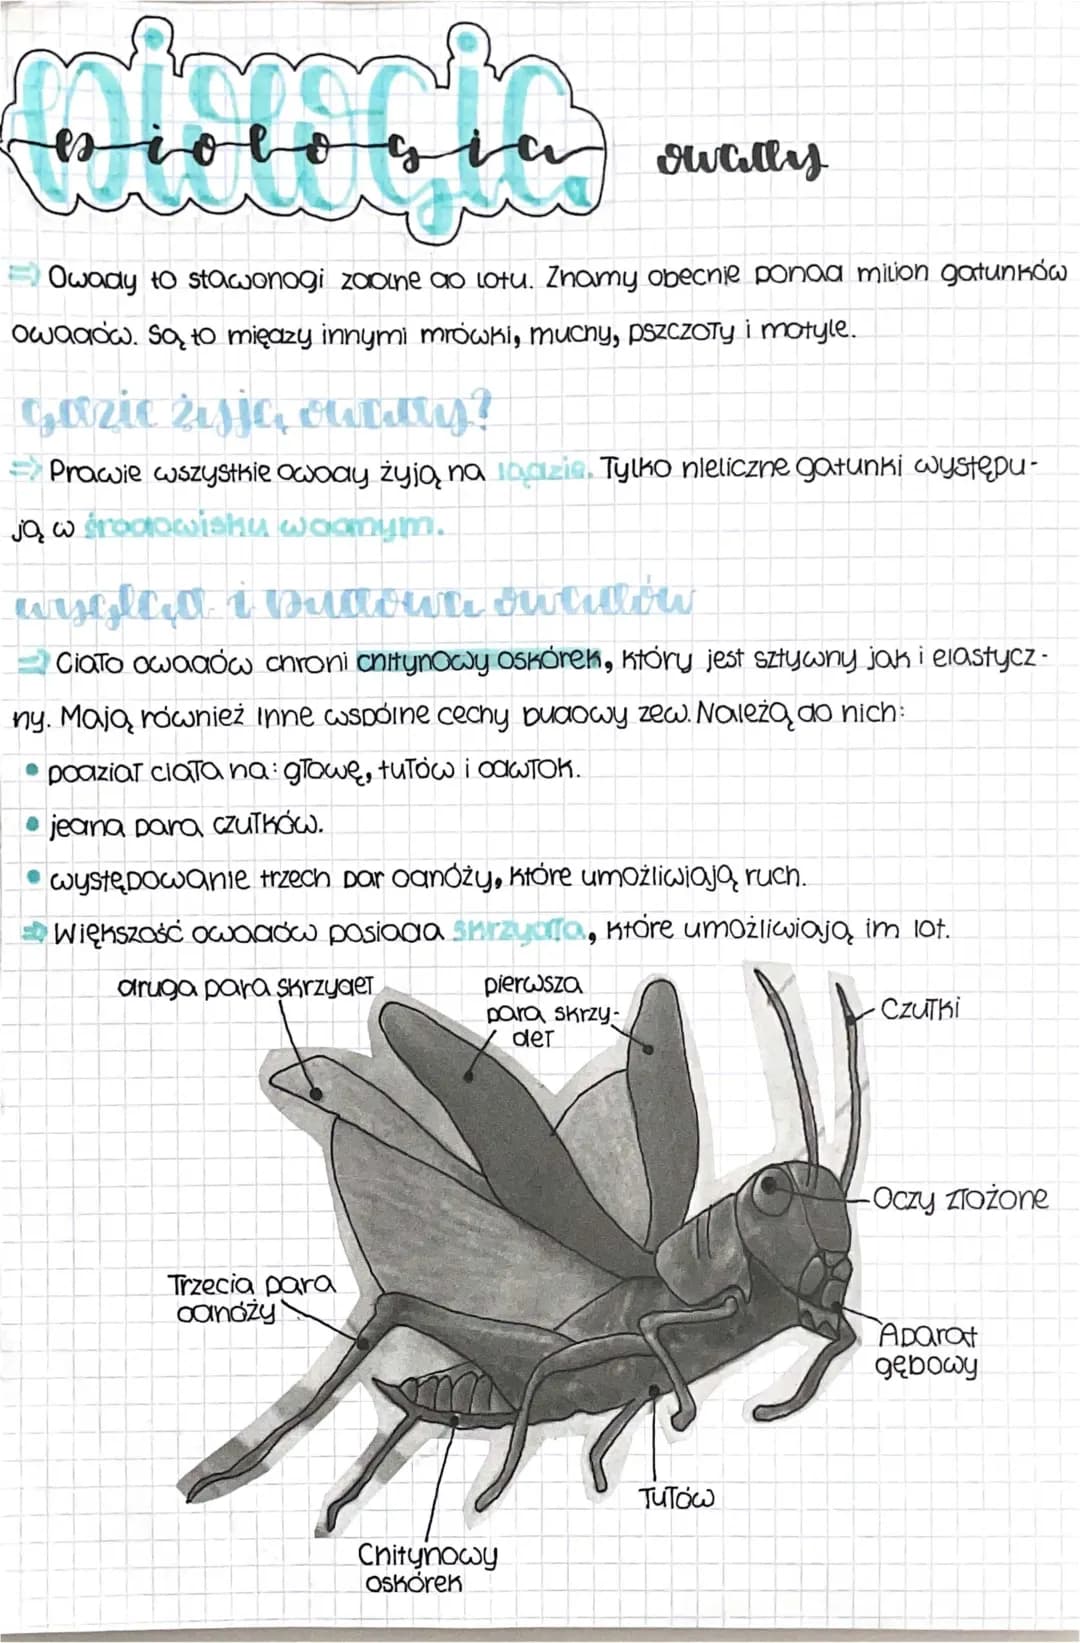 biologia
owady
⇒ Owady to stawonogi zdolne do lotu. Znamy obecnie ponad milion gatunków
owadów. Są to między innymi mrówki, muchy, pszczoły i motyle.
gdzie żyją owady?
⇒ Prawie wszystkie owady żyją na lądzie. Tylko nieliczne gatunki występu-
ją w środowisku wodnym.
wygląd i budowa owadów
⇒ Ciało owadów chroni chitynowy oskórek, który jest sztywny jak i elastycz-
ny. Mają również inne wspólne cechy budowy zew. Należą do nich:
• podział ciała na: głowę, tułów i odwłok.
• jedna para czułków.
• występowanie trzech par odnóży, które umożliwiają ruch.
⇒ Większość owadów posiada skrzydła, które umożliwiają im lot.
druga para skrzydeł
pierwsza
para skrzy-
deł
Czułki
Oczy złożone
Trzecia para
odnóży
Aparat
gębowy
Tułów
Chitynowy
oskórek